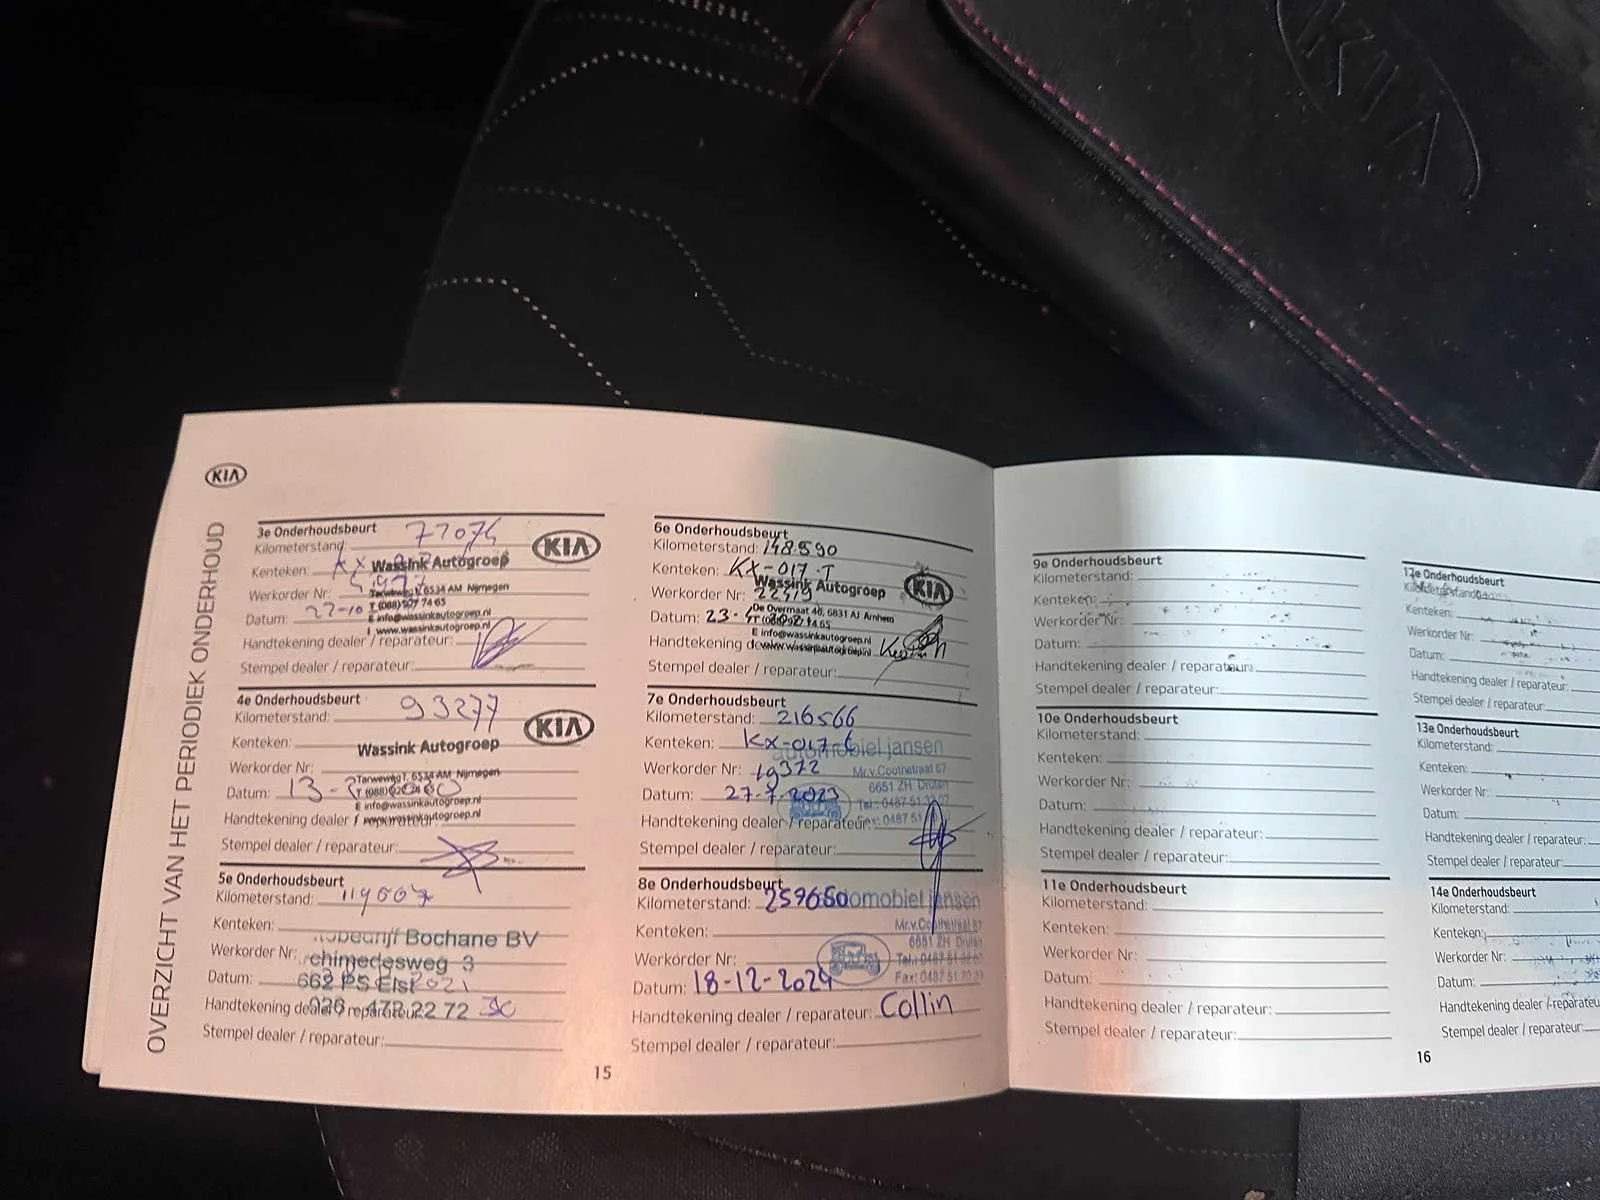 KIA
KIA
OVERZICHT VAN HET PERIODIEK ONDERHOUD
3e Onderhoudsbeurt
Kilometerstand: 77074
KIA
Kenteken: KX
Wassink Autogroep
Werkorder Nr:
Tarweweg 1, 6534 AM Nijmegen
Datum: 22-10
T (088) 927 74 65
E info@wassinkautogroep.nl
I www.wassinkautogroep.nl
Handtekening dealer / reparateur:
Stempel dealer / reparateur:
4e Onderhoudsbeurt
Kilometerstand: 93277
KIA
Kenteken:
Wassink Autogroep
Werkorder Nr:
Tarweweg 1, 6534 AM Nijmegen
Datum: 13-
E info@wassinkautogroep.nl
Handtekening dealer / reparateur:
Stempel dealer / reparateur:
5e Onderhoudsbeurt
Kilometerstand: 119607
Kenteken:
Bochane BV
Werkorder Nr:
chimedesweg 3
Datum: 2021
662 PS Elst
Handtekening dealer / reparateur:
026 - 472 22 72
Stempel dealer / reparateur:
15
6e Onderhoudsbeurt
Kilometerstand: 148590
Kenteken: KX-017-T
Wassink Autogroep
KIA
Werkorder Nr: 22419
De Overmaat 48, 6831 AJ Arnhem
Datum: 23-
E info@wassinkautogroep.nl
Handtekening
www.wassinkautogroep.nl
Stempel dealer / reparateur:
7e Onderhoudsbeurt
Kilometerstand: 216566
Kenteken: KX-017
automobiel jansen
Werkorder Nr: 19372
Mr.v.Coothstraat 67
6651 ZH Druten
Datum: 27-7-2023
Tel.: 0487 51
Fax: 0487 51
Handtekening dealer / reparateur:
Stempel dealer / reparateur:
8e Onderhoudsbeurt
Kilometerstand: 259650
omobiel jansen
Kenteken:
Mr.v. Coothstraat 67
6651 ZH Druten
Werkorder Nr:
Tel.: 0487 51
Datum: 18-12-2024
Fax: 0487 51
Handtekening dealer / reparateur: Collin
Stempel dealer / reparateur:
9e Onderhoudsbeurt
Kilometerstand:
Kenteken:
Werkorder Nr:
Datum:
Handtekening dealer / reparateur:
Stempel dealer / reparateur:
10e Onderhoudsbeurt
Kilometerstand:
Kenteken:
Werkorder Nr:
Datum:
Handtekening dealer / reparateur:
Stempel dealer / reparateur:
11e Onderhoudsbeurt
Kilometerstand:
Kenteken:
Werkorder Nr:
Datum:
Handtekening dealer / reparateur:
Stempel dealer / reparateur:
12e Onderhoudsbeurt
Kilometerstand:
Kenteken:
Werkorder Nr:
Datum:
Handtekening dealer / reparateur:
Stempel dealer / reparateur:
13e Onderhoudsbeurt
Kilometerstand:
Kenteken:
Werkorder Nr:
Datum:
Handtekening dealer / reparateur:
Stempel dealer / reparateur:
14e Onderhoudsbeurt
Kilometerstand:
Kenteken:
Werkorder Nr:
Datum:
Handtekening dealer / reparateu
Stempel dealer / reparateur:
16